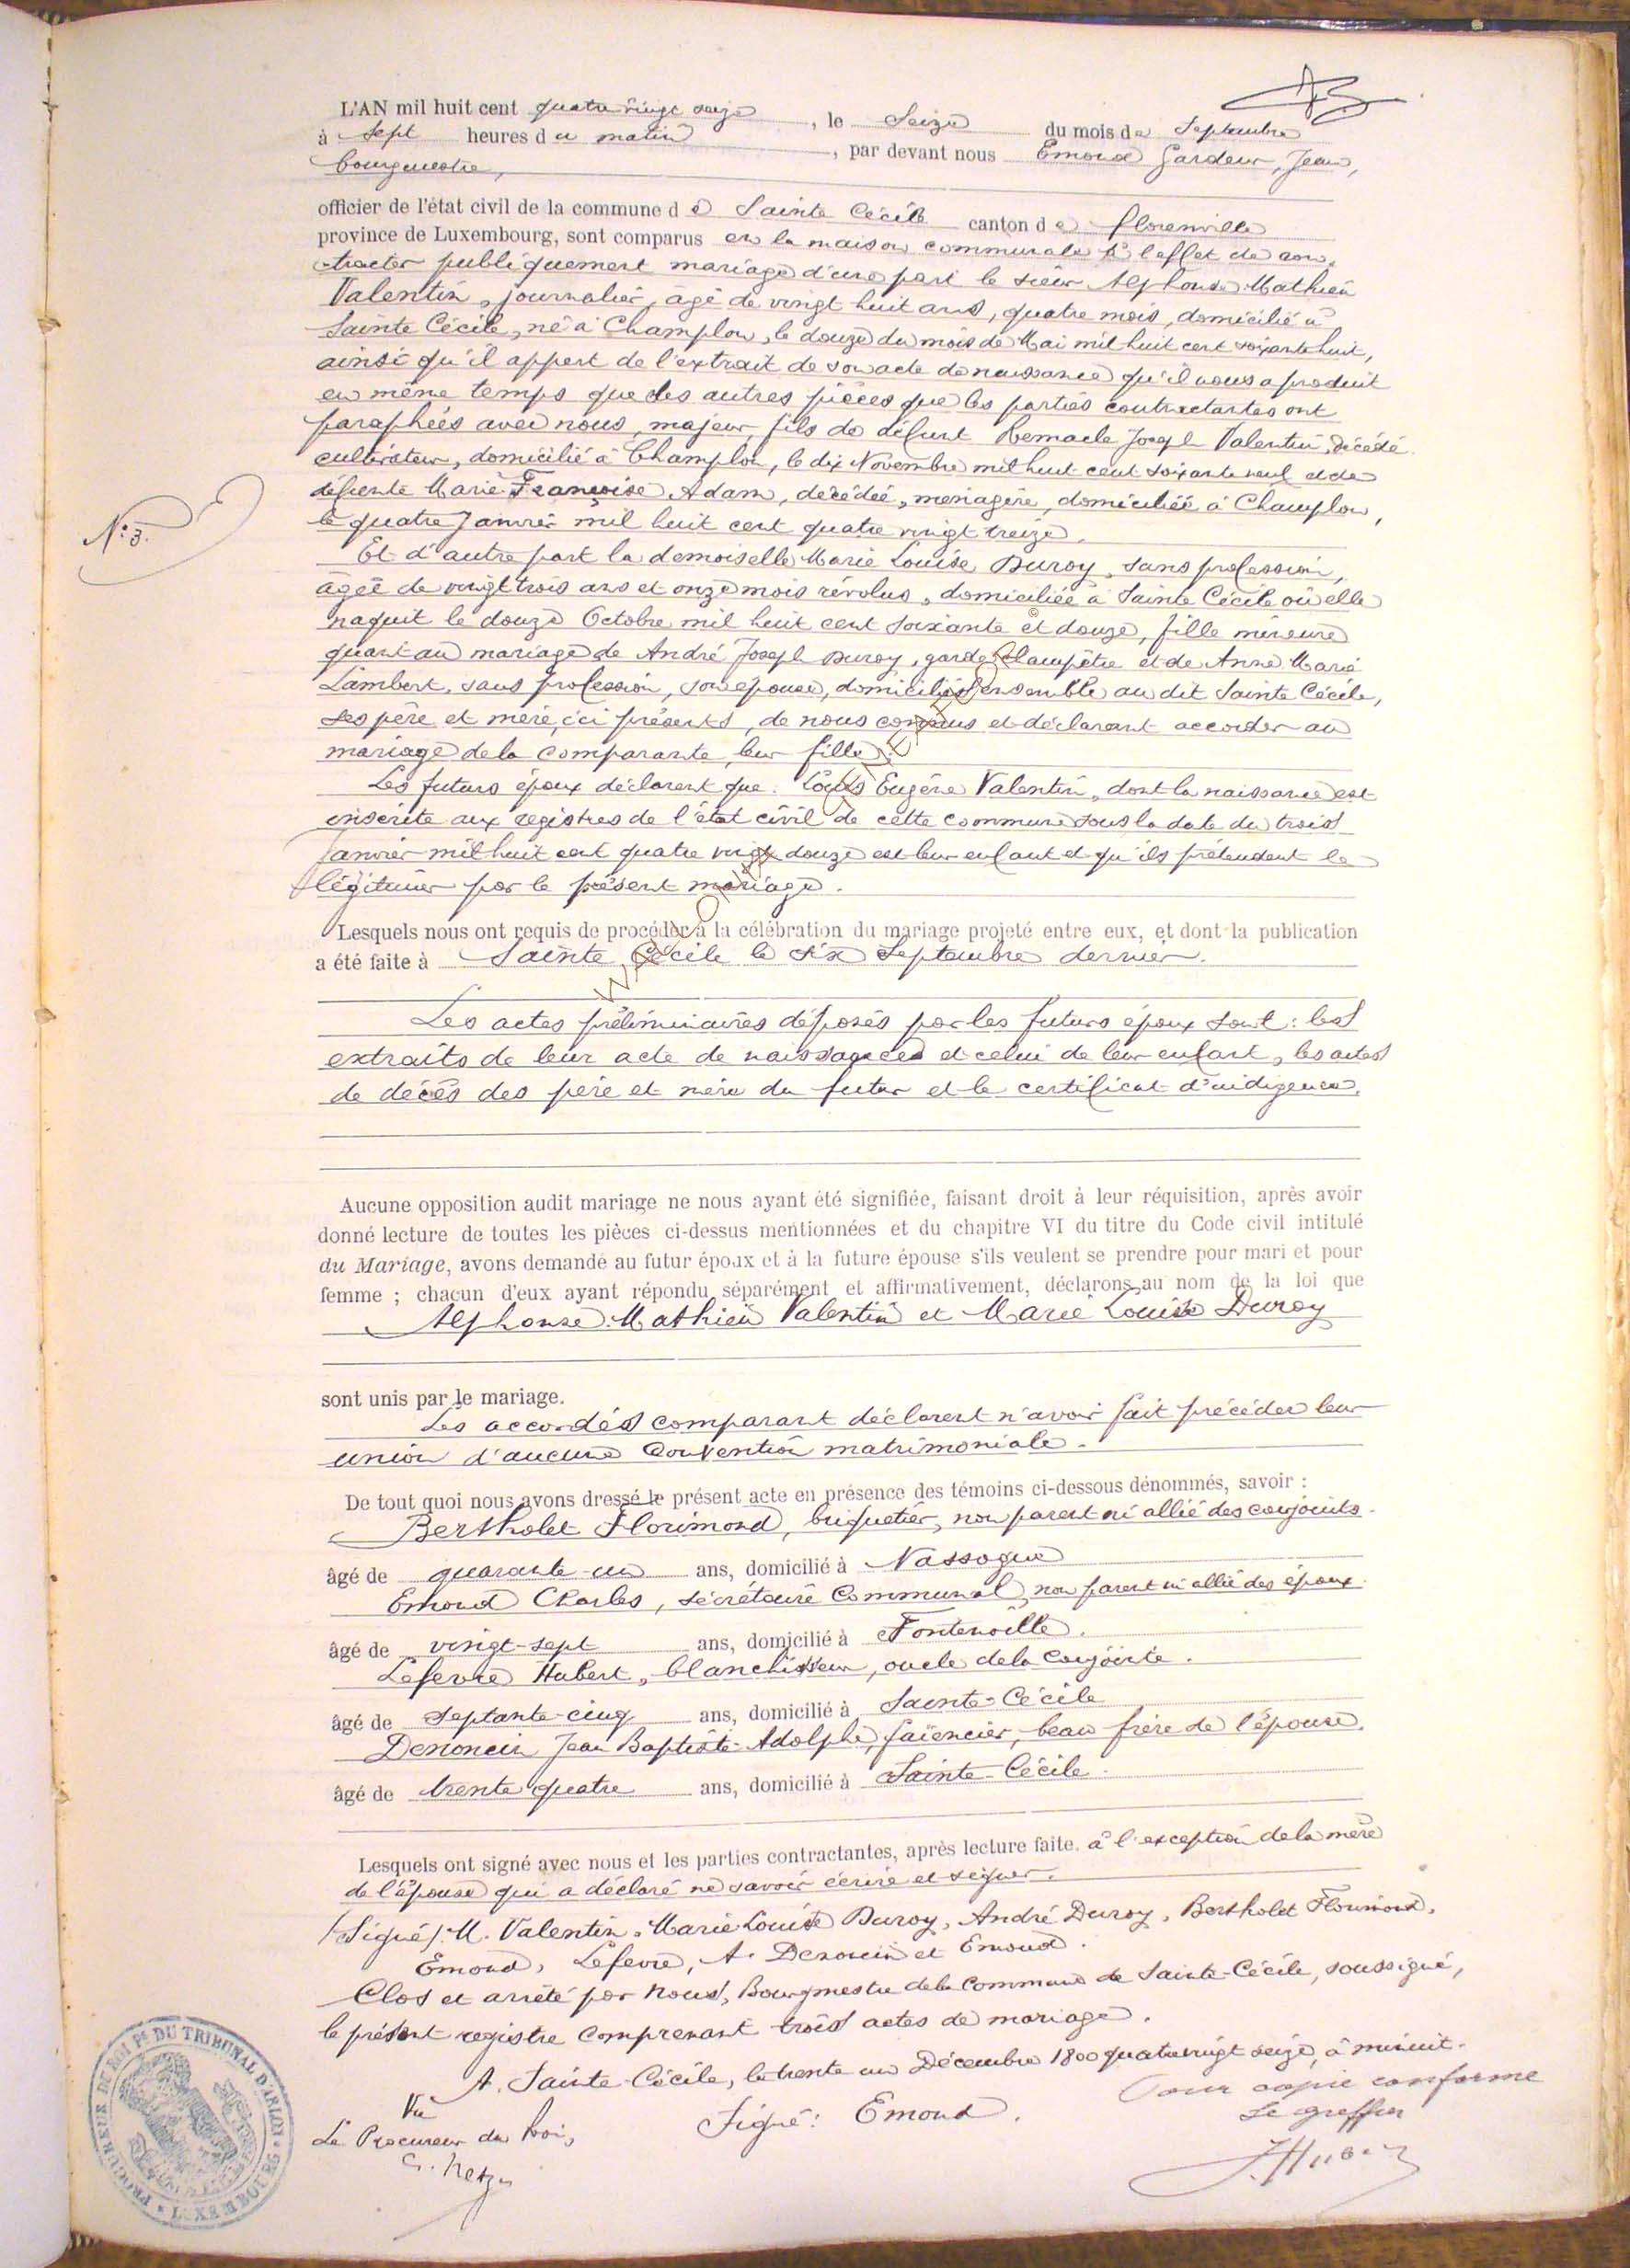 L'AN mil huit cent quatre vingt seize, le Seize du mois de Septembre
à Sept heures du matin, par devant nous Emond Gardeur, Jean,
bourgmestre,
officier de l'état civil de la commune de Sainte Cécile canton de Florenville
province de Luxembourg, sont comparus en la maison communale à l'effet de con-
tracter publiquement mariage d'une part le sieur Alphonse Mathieu
Valentin, journalier, âgé de vingt huit ans, quatre mois, domicilié à
Sainte Cécile, né à Champlon, le douze du mois de Mai mil huit cent soixante huit,
ainsi qu'il appert de l'extrait de son acte de naissance qu'il nous a produit
en même temps que les autres pièces que les parties contractantes ont
paraphées avec nous, majeur, fils de défunt Remacle Joseph Valentin, décédé
cultivateur, domicilié à Champlon, le dix Novembre mil huit cent soixante neuf et de
défunte Marie Françoise Adam, décédée, ménagère, domiciliée à Champlon,
le quatre Janvier mil huit cent quatre vingt treize.
N° 3.
Et d'autre part la demoiselle Marie Louise Duroy, sans profession,
âgée de vingt trois ans et onze mois révolus, domiciliée à Sainte Cécile où elle
naquit le douze Octobre mil huit cent soixante et douze, fille mineure
quant au mariage de André Joseph Duroy, garde champêtre et de Anne Marie
Lambert, sans profession, son épouse, domiciliés ensemble au dit Sainte Cécile,
ses père et mère, ici présents, de nous connus et déclarant accorder au
mariage de la comparante, leur fille.
Les futurs époux déclarent que Louis Eugène Valentin, dont la naissance est
inscrite aux registres de l'état civil de cette commune sous la date du trois
Janvier mil huit cent quatre vingt douze est leur enfant et qu'ils prétendent le
légitimer par le présent mariage.
Lesquels nous ont requis de procéder à la célébration du mariage projeté entre eux, et dont la publication
a été faite à Sainte Cécile le six Septembre dernier.
Les actes préliminaires déposés par les futurs époux sont : les
extraits de leur acte de naissances et celui de leur enfant, les actes
de décès des père et mère du futur et le certificat d'indigence.
Aucune opposition audit mariage ne nous ayant été signifiée, faisant droit à leur réquisition, après avoir
donné lecture de toutes les pièces ci-dessus mentionnées et du chapitre VI du titre du Code civil intitulé
du Mariage, avons demandé au futur époux et à la future épouse s'ils veulent se prendre pour mari et pour
femme ; chacun d'eux ayant répondu séparément et affirmativement, déclarons au nom de la loi que
Alphonse Mathieu Valentin et Marie Louise Duroy
sont unis par le mariage.
Les accordés comparant déclarent n'avoir fait précéder leur
union d'aucune Convention matrimoniale.
De tout quoi nous avons dressé le présent acte en présence des témoins ci-dessous dénommés, savoir :
Bertholet Florimond, briquetier, non parent ni allié des conjoints.
âgé de quarante-un ans, domicilié à Nassogne
Emond Charles, secrétaire Communal, non parent ni allié des époux.
âgé de vingt-sept ans, domicilié à Fontenoille.
Lefevre Hubert, blanchisseur, oncle de la conjointe.
âgé de septante-cinq ans, domicilié à Sainte-Cécile
Denoncin Jean Baptiste Adolphe, faïencier, beau frère de l'épouse.
âgé de trente quatre ans, domicilié à Sainte-Cécile.
Lesquels ont signé avec nous et les parties contractantes, après lecture faite. à l'exception de la mère
de l'épouse qui a déclaré ne savoir écrire et signer.
(Signé) M. Valentin, Marie Louise Duroy, André Duroy, Bertholet Florimond,
Emond, Lefevre, A. Denoncin et Emond.
Clos et arrêté par Nous, Bourgmestre de la Commune de Sainte-Cécile, soussigné,
le présent registre comprenant trois actes de mariage.
A. Sainte-Cécile, le trente un Décembre 1800 quatre vingt seize, à minuit.
Signé : Emond.
Pour copie conforme
Le greffier
Vu
Le Procureur du Roi,
PROCUREUR DU ROI Pr. DU TRIBUNAL D'ARLON LUXEMBOURG